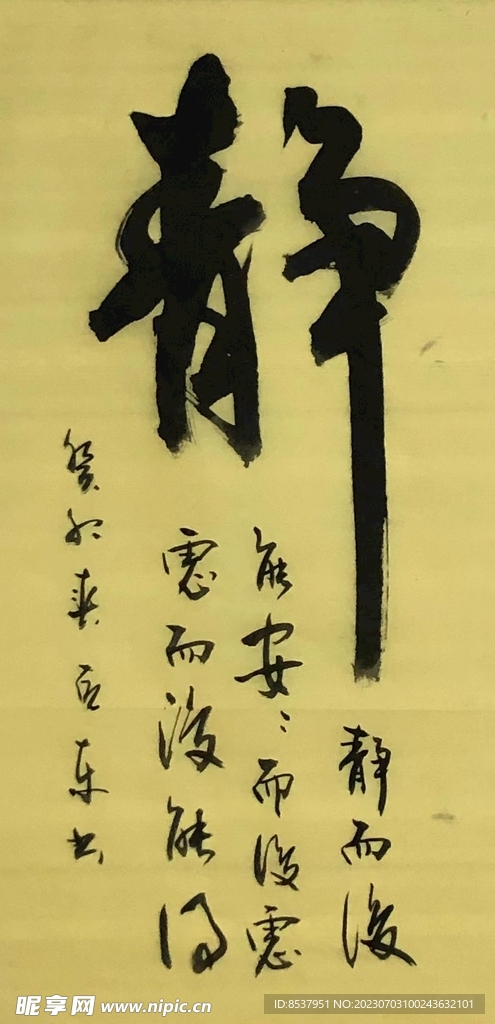 静
静而後
能安々而後慮
慮而後能得
癸卯 东书
昵享网 www.nipic.cn
ID:8537951 NO:20230703100243632101